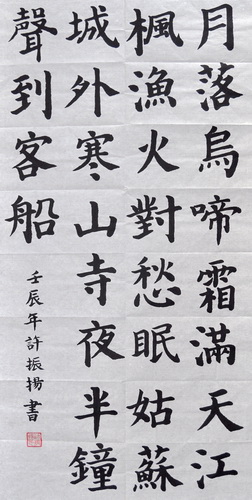 月落烏啼霜滿天江
楓漁火對愁眠姑蘇
城外寒山寺夜半鐘
聲到客船
壬辰年許振揚書